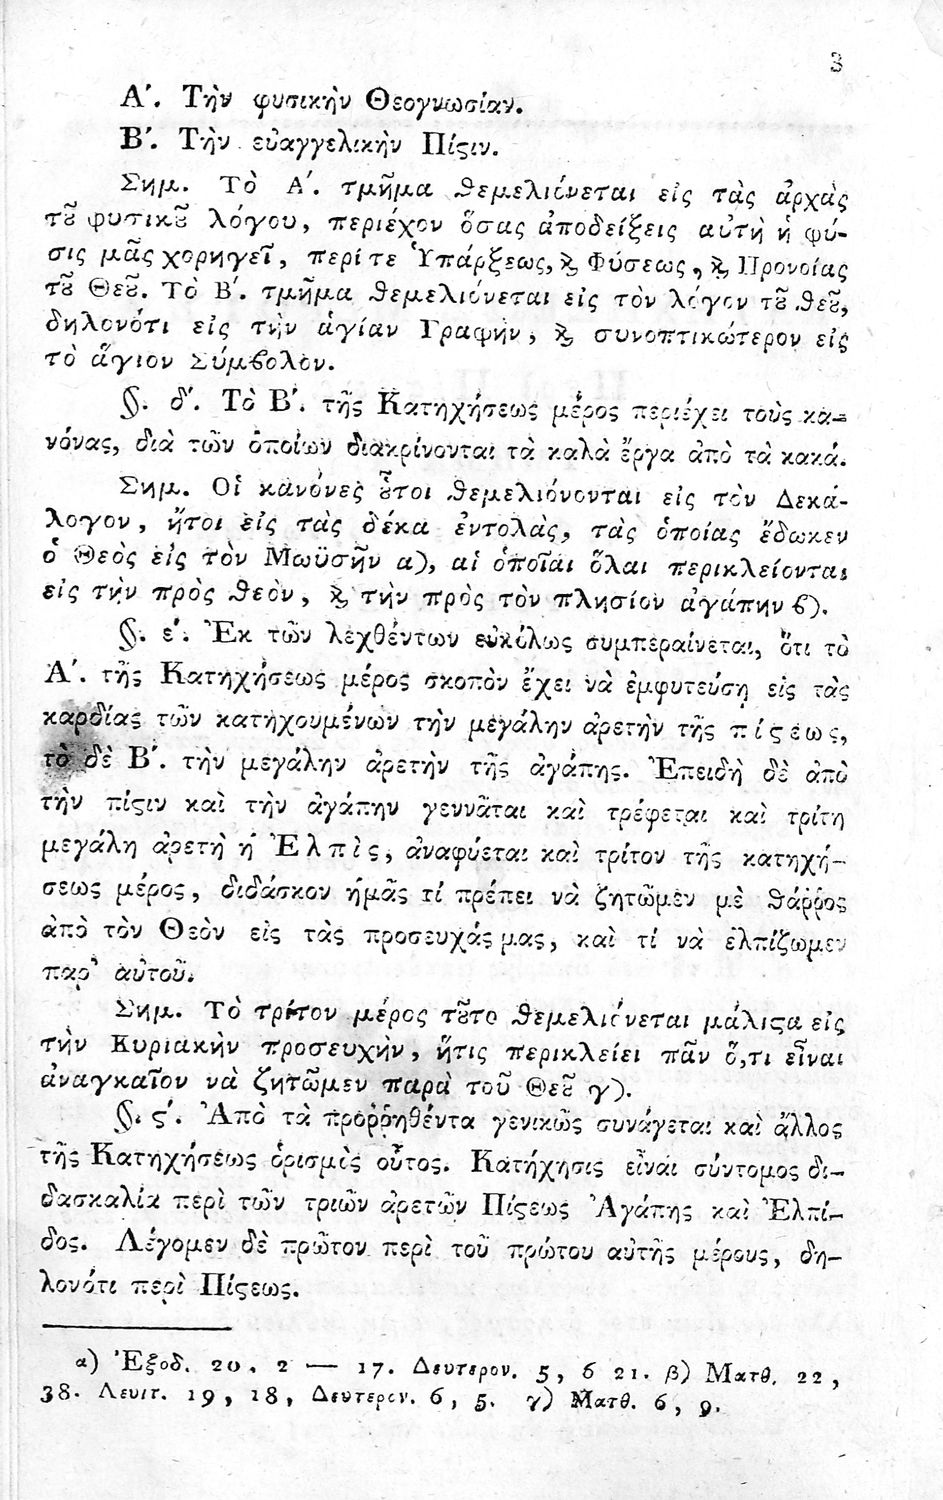 3
Α΄. Τὴν φυσικὴν Θεογνωσίαν.
Β΄. Τὴν εὐαγγελικὴν Πίϛιν.
Σημ. Τὸ Α΄. τμῆμα θεμελιόνεται εἰς τὰς ἀρχὰς
τȣ͂ φυσικȣ͂ λόγου, περιέχον ὅσας ἀποδείξεις αὐτὴ ἡ φύ-
σις μᾶς χορηγεῖ, περί τε Ὑπάρξεως, ϗ Φύσεως, ϗ Προνοίας
τȣ͂ Θεȣ͂. Τὸ Β΄. τμῆμα θεμελιόνεται εἰς τὸν λόγον τȣ͂ θεȣ͂,
δηλονότι εἰς τὴν ἁγίαν Γραφὴν, ϗ συνοπτικώτερον εἰς
τὸ ἅγιον Σύμϐολον.
§. δ΄. Τὸ Β΄. τῆς Κατηχήσεως μέρος περιέχει τοὺς κα-
νόνας, διὰ τῶν ὁποίων διακρίνονται τὰ καλὰ ἔργα ἀπὸ τὰ κακά.
Σημ. Οἱ κανόνες ȣ͗͂τοι θεμελιόνονται εἰς τὸν Δεκά-
λογον, ἤτοι εἰς τὰς δέκα ἐντολὰς, τὰς ὁποίας ἔδωκεν
ὁ Θεὸς εἰς τὸν Μωϋσῆν α), αἱ ὁποῖαι ὅλαι περικλείονται
εἰς τὴν πρὸς θεὸν, ϗ τὴν πρὸς τὸν πλησίον ἀγάπην ϐ).
§. ε΄. Ἐκ τῶν λεχθέντων εὐκόλως συμπεραίνεται, ὅτι τὸ
Α΄. τῆς Κατηχήσεως μέρος σκοπὸν ἔχει νὰ ἐμφυτεύσῃ εἰς τὰς
καρδίας τῶν κατηχουμένων τὴν μεγάλην ἀρετὴν τῆς πίϛεως,
τὸ δὲ Β΄. τὴν μεγάλην ἀρετὴν τῆς ἀγάπης. Ἐπειδὴ δὲ ἀπὸ
τὴν πίϛιν καὶ τὴν ἀγάπην γεννᾶται καὶ τρέφεται καὶ τρίτη
μεγάλη ἀρετὴ ἡ Ἐλπὶς, ἀναφύεται καὶ τρίτον τῆς κατηχή-
σεως μέρος, διδάσκον ἡμᾶς τί πρέπει νὰ ζητῶμεν μὲ θάῤῥος
ἀπὸ τὸν Θεὸν εἰς τὰς προσευχάς μας, καὶ τί νὰ ἐλπίζωμεν
παρ᾽ αὐτοῦ.
Σημ. Τὸ τρίτον μέρος τȣ͂το θεμελιόνεται μάλιϛα εἰς
τὴν Κυριακὴν προσευχὴν, ἥτις περικλείει πᾶν ὅ,τι εἶναι
ἀναγκαῖον νὰ ζητῶμεν παρὰ τοῦ Θεȣ͂ γ).
§. ϛ΄. Ἀπὸ τὰ προῤῥηθέντα γενικῶς συνάγεται καὶ ἄλλος
τῆς Κατηχήσεως ὁρισμὸς οὗτος. Κατήχησις εἶναι σύντομος δι-
δασκαλία περὶ τῶν τριῶν ἀρετῶν Πίϛεως Ἀγάπης καὶ Ἐλπί-
δος. Λέγομεν δὲ πρῶτον περὶ τοῦ πρώτου αὐτῆς μέρους, δη-
λονότι περὶ Πίϛεως.
α) Ἐξοδ. 20. 2 — 17. Δευτερον. 5, 6 21. β) Ματθ. 22,
38. Λευιτ. 19, 18, Δευτερον. 6, 5. γ) Ματθ. 6, 9.